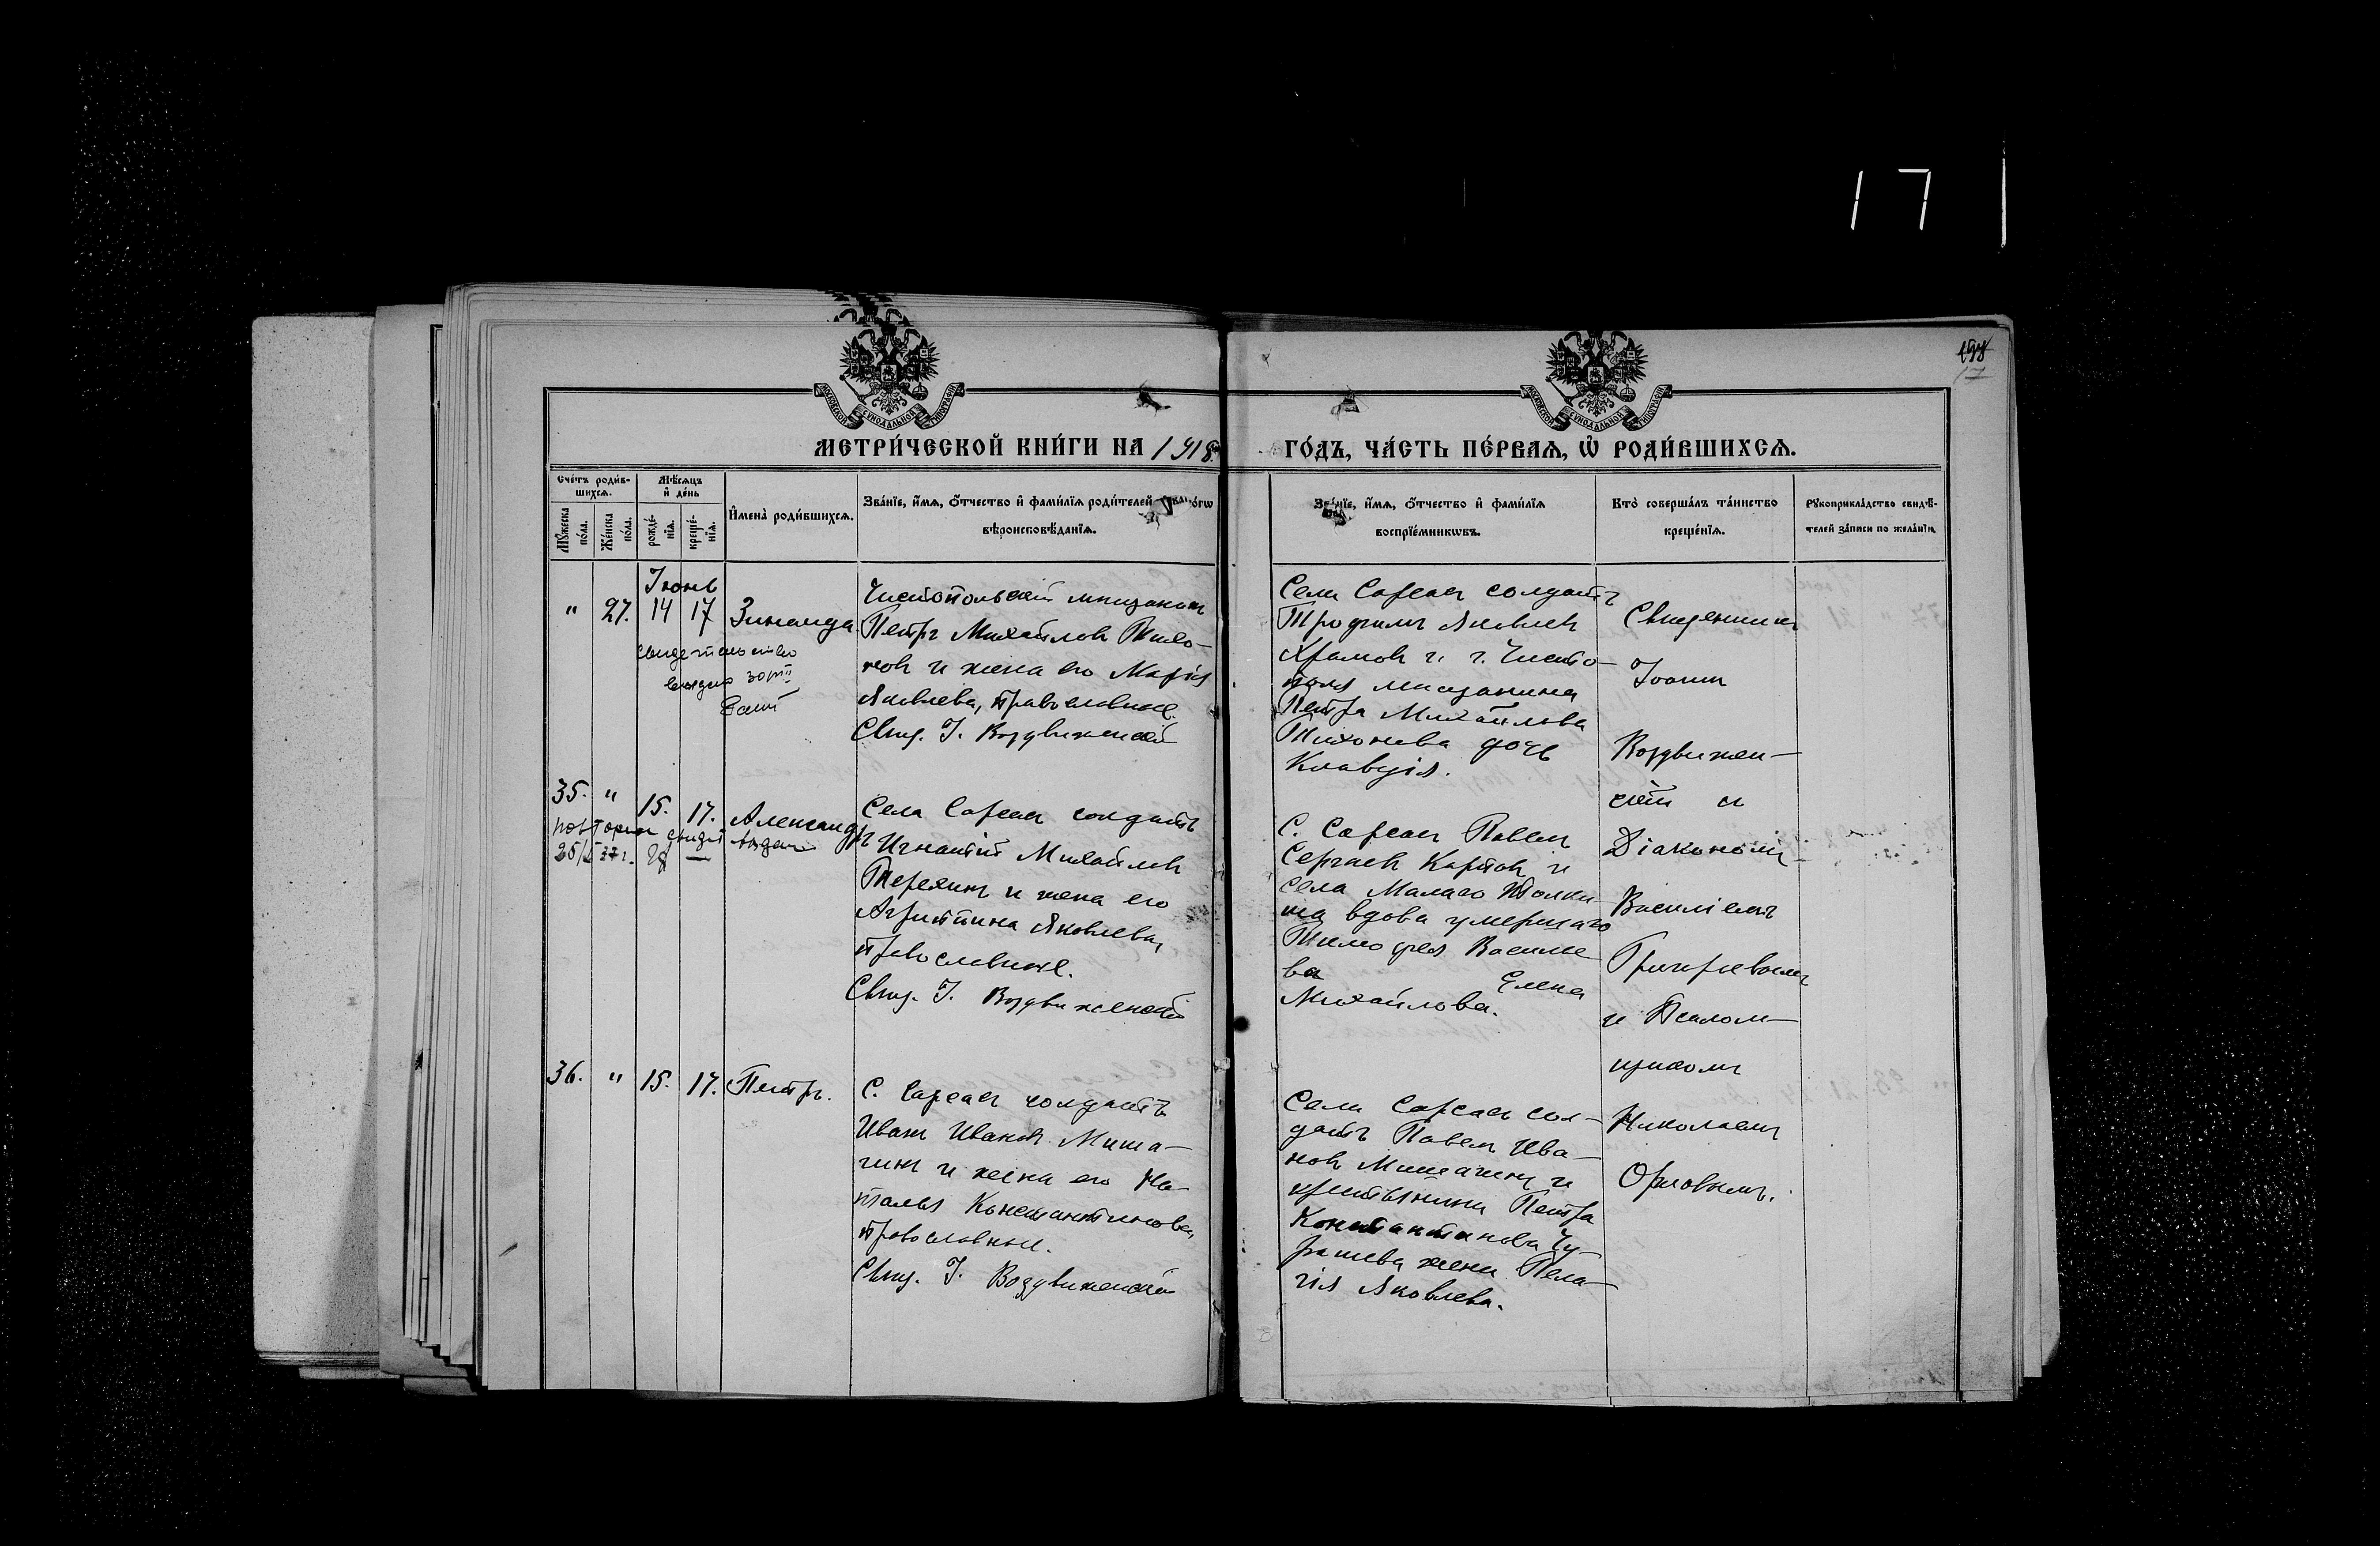 171
198
17
МОСКОВСКОЙ СУНОДАЛЬНОЙ ТИПОГРАФІИ
МОСКОВСКОЙ СУНОДАЛЬНОЙ ТИПОГРАФІИ
МЕТРИ́ЧЕСКОЙ КНИ́ГИ НА 1918 ГО́ДЪ, ЧА́СТЬ ПЕ́РВАѦ, Ѽ РОДИ́ВШИХСѦ.
Сче́тъ роди́в-
шихсѧ.
Мѣ́сѧцъ
и҆ де́нь
Мꙋ́жеска
по́ла.
Же́нска
по́ла.
рожде́-
нїѧ.
креще́-
нїѧ.
И҆мена̀ роди́вшихсѧ.
Зва́нїе, и҆́мѧ, ѻ҆́тчество и҆ фами́лїѧ роди́телей
вѣроисповѣ́данїѧ.
Зва́нїе, и҆́мѧ, ѻ҆́тчество и҆ фами́лїѧ
воспрїе́мникѡвъ.
Кто̀ соверша́лъ та́инство
креще́нїѧ.
Рꙋкоприкла́дство свидѣ́-
телей за́писи по жела́нїю.
Іюнь
" 27. 14 17 Зинаида
Свидетельство
выдано
Чистопольскій мѣщанинъ
Петръ Михайловъ Тихо-
новъ и жена его Марія
Яковлева, православные.
Свящ. І. Воздвиженскій
Села Сарсасъ солдатъ
Трофимъ Яковлевъ
Храмовъ и г. Чисто-
поля мѣщанина
Петра Михайлова
Тихонова дочь
Клавдія.
Священникъ
Іоаннъ
Воздвижен-
скій съ
Діакономъ
Василіемъ
Григорьевымъ
и Псалом-
щикомъ
Николаемъ
Орловымъ.
35. " 15. 17. Александръ
повторно свидѣт выдано
25/ 27 г.
Села Сарсасъ солдатъ
Игнатій Михайловъ
Терехинъ и жена его
Агриппина Яковлева,
православные.
Свящ. І. Воздвиженскій
С. Сарсасъ Павелъ
Сергѣевъ Карповъ и
села Малаго Толки-
ша вдова умершаго
Тимофея Василье-
ва Елена
Михайлова.
36. " 15. 17. Петръ.
С. Сарсасъ солдатъ
Иванъ Ивановъ Миша-
гинъ и жена его На-
талья Константинова,
православные.
Свящ. І. Воздвиженскій
Села Сарсасъ сол-
датъ Павелъ Ива-
новъ Мишагинъ и
крестьянина Петра
Константинова Чу-
рашева жена Пела-
гія Яковлева.